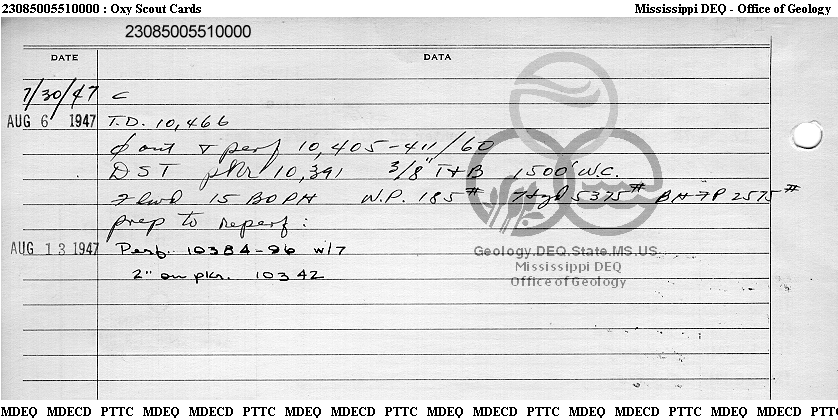 23085005510000 : Oxy Scout Cards Mississippi DEQ - Office of Geology
23085005510000
DATE DATA
7/30/47 C
AUG 6 1947 T.D. 10,466
out & perf 10,405-411/60
DST pkr 10,391 3/8" T+B 1500' W.C.
Flwd 15 BOPH W.P. 185# Hyd 5375# BHFP 2575#
prep to reperf:
AUG 13 1947 Perf. 10384-96 w/7
2" on pkr. 10342
Geology.DEQ.State.MS.US
Mississippi DEQ
Office of Geology
MDEQ MDECD PTTC MDEQ MDECD PTTC MDEQ MDECD PTTC MDEQ MDECD PTTC MDEQ MDECD PTTC MDEQ MDECD